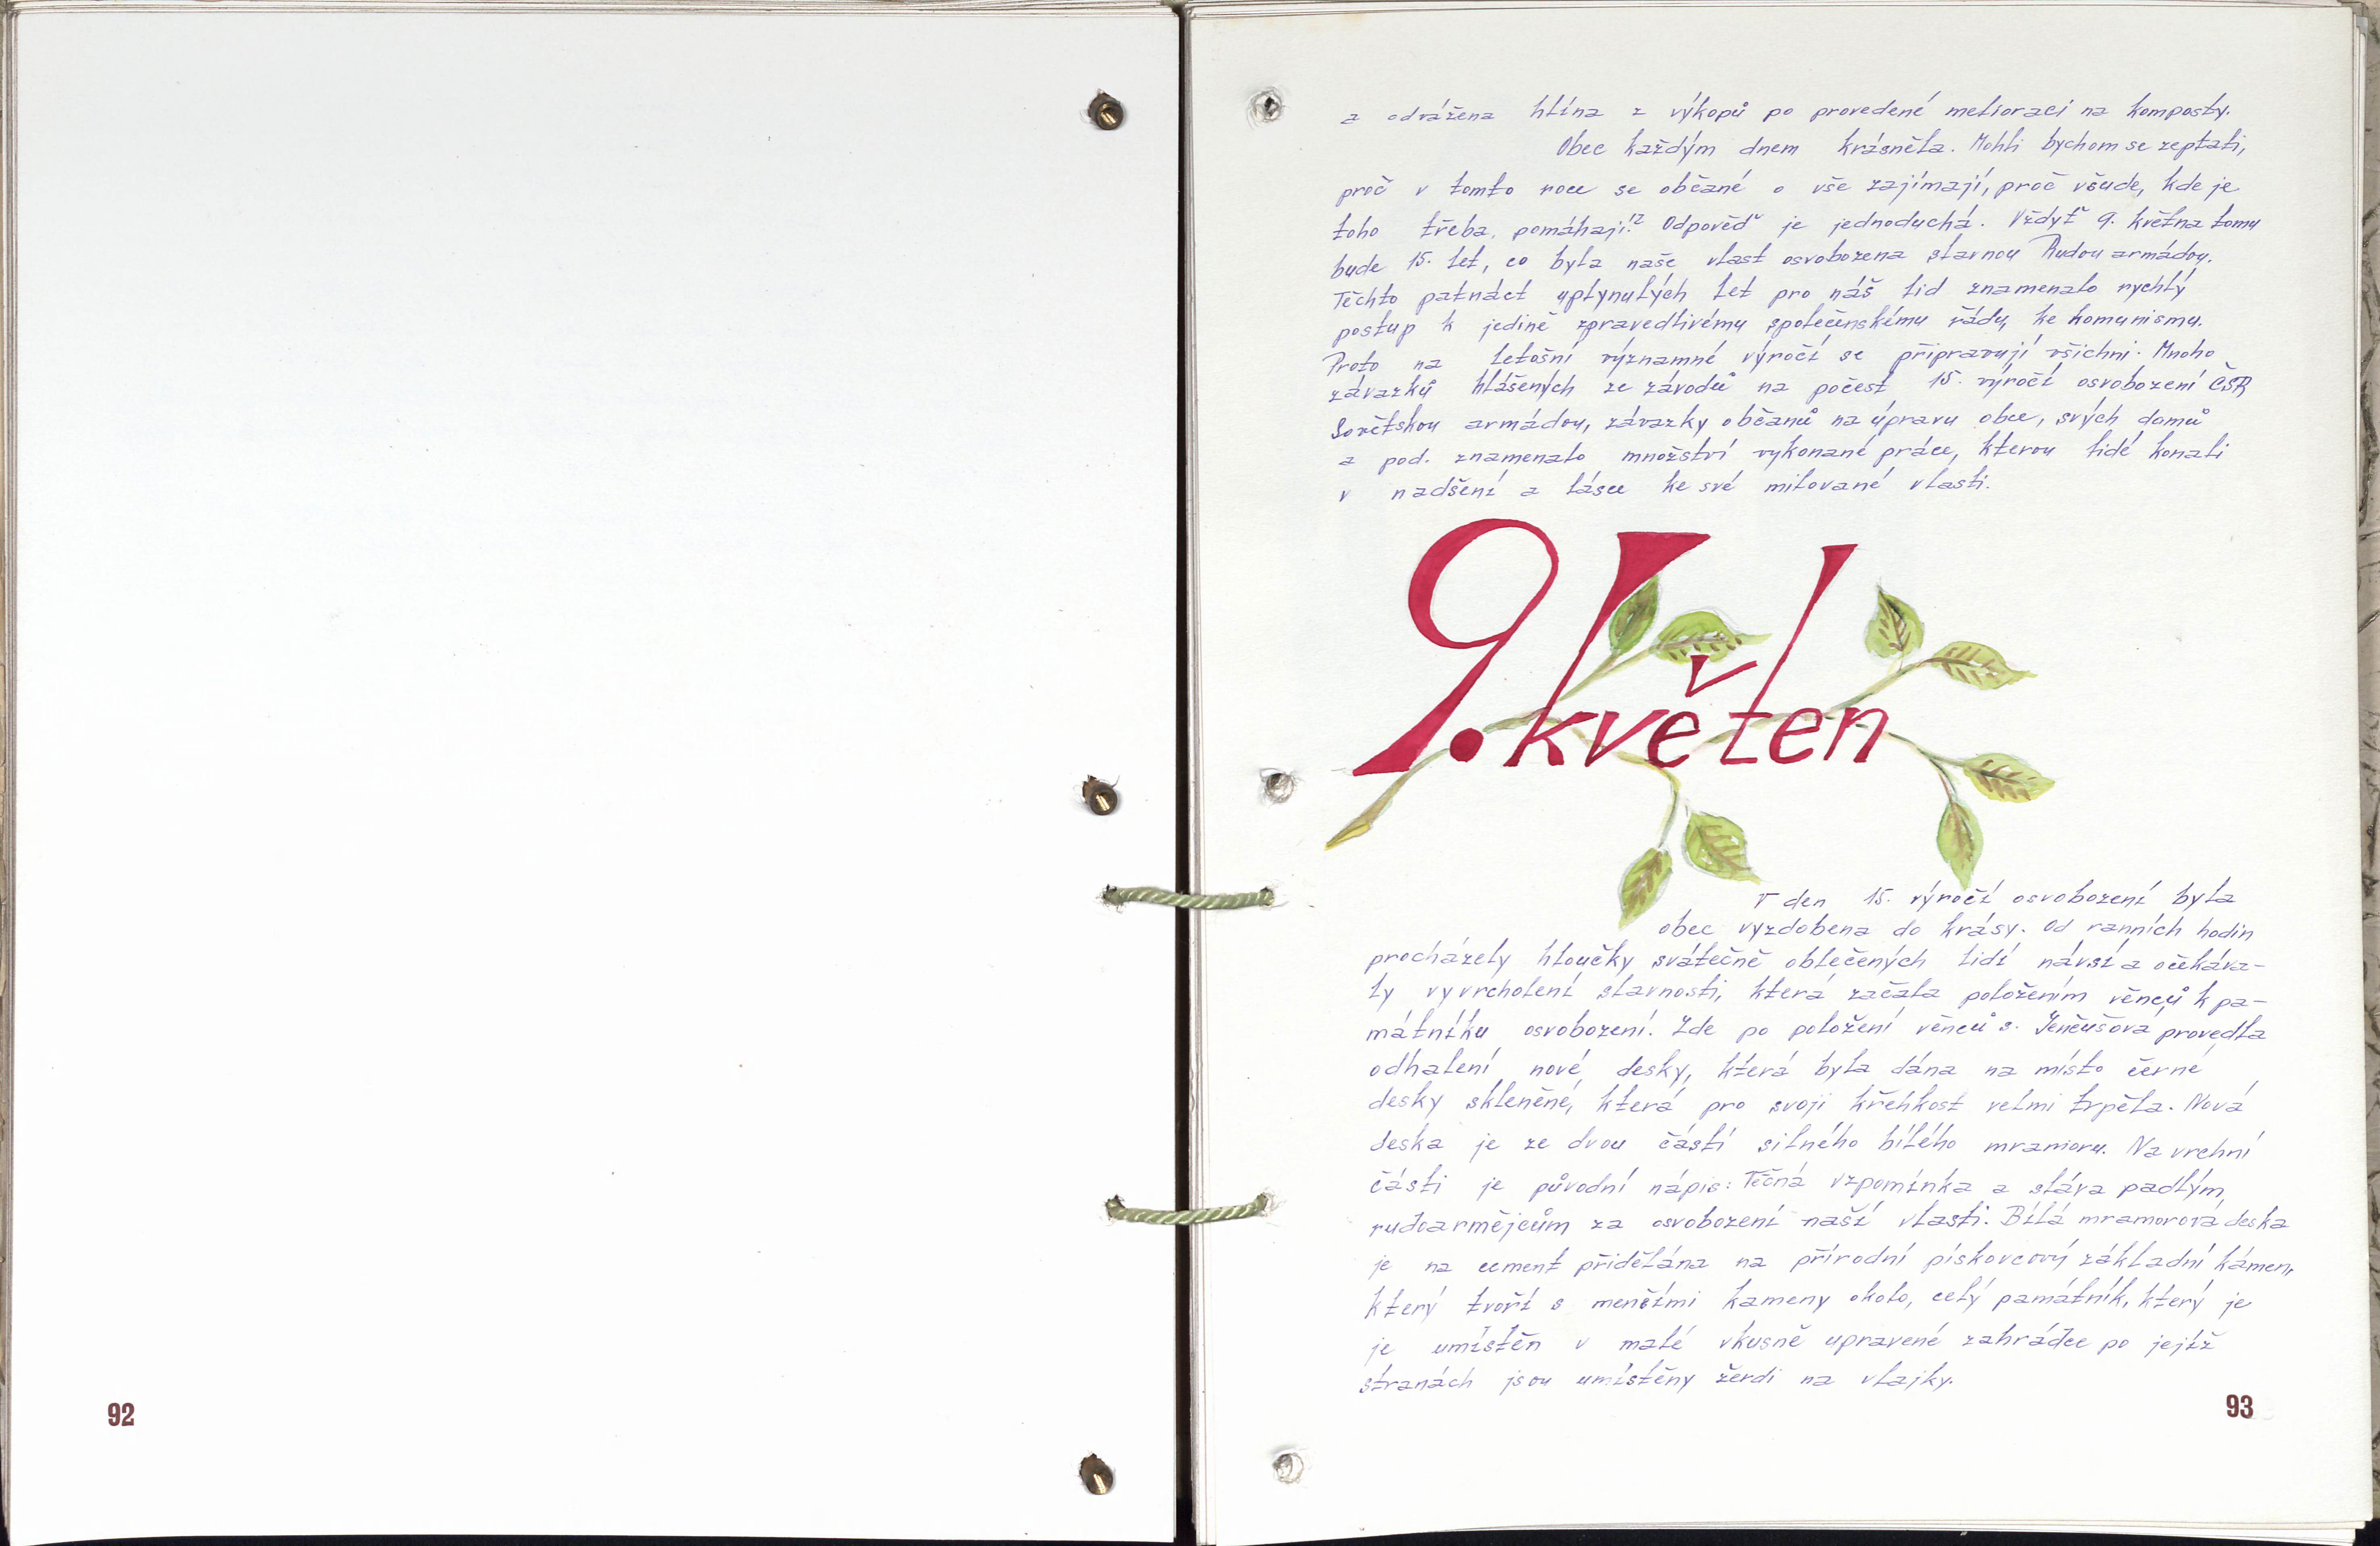 a odvážena hlína z výkopů po provedené melioraci na komposty.
Obec každým dnem krásněla. Mohli bychom se zeptati,
proč v tomto roce se občané o vše zajímají, proč všude, kde je
toho třeba, pomáhají!? Odpověď je jednoduchá. Vždyť 9. května tomu
bude 15. let, co byla naše vlast osvobozena slavnou Rudou armádou.
Těchto patnáct uplynulých let pro náš lid znamenalo rychlý
postup k jedině spravedlivému společenskému řádu, ke komunismu.
Proto na letošní významné výročí se připravují všichni. Mnoho
závazků hlášených ze závodů na počest 15. výročí osvobození ČSR
Sovětskou armádou, závazky občanů na úpravu obce, svých domů
a pod. znamenalo množství vykonané práce, kterou lidé konali
v nadšení a lásce ke své milované vlasti.
9. květen
V den 15. výročí osvobození byla
obec vyzdobena do krásy. Od ranních hodin
procházely hloučky svátečně oblečených lidí návsí a očekáva-
ly vyvrcholení slavnosti, která začala položením věnců k pa-
mátníku osvobození. Zde po položení věnců s. Jenčušová provedla
odhalení nové desky, která byla dána na místo černé
desky skleněné, která pro svoji křehkost velmi trpěla. Nová
deska je ze dvou částí silného bílého mramoru. Na vrchní
části je původní nápis: Věčná vzpomínka a sláva padlým
rudoarmějcům za osvobození naší vlasti. Bílá mramorová deska
je na cement přidělána na přírodní pískovcový základní kámen,
který tvoří s menšími kameny okolo, celý památník, který je
je umístěn v malé vkusně upravené zahrádce po jejíž
stranách jsou umístěny žerdi na vlajky.
92
93